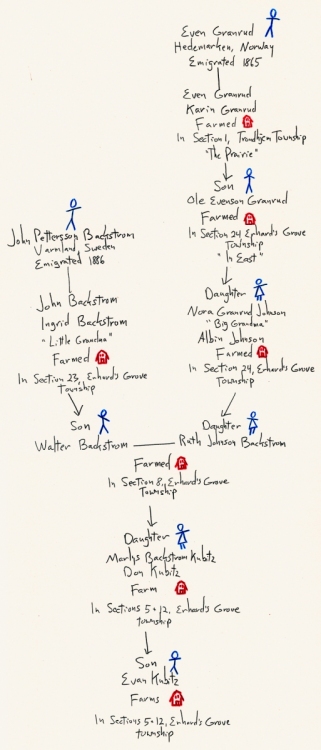 Even Granrud
Hedemarken, Norway
Emigrated 1865
Even Granrud
Karin Granrud
Farmed
In Section 1, Trondhjem Township
"The Prairie"
Son
Ole Evenson Granrud
Farmed
In Section 24, Erhards Grove
Township
"In East"
Daughter
Nora Granrud Johnson
"Big Grandma"
Albin Johnson
Farmed
In Section 24, Erhard's Grove
Township
Daughter
Ruth Johnson Backstrom
John Pettersson Backstrom
Varmland, Sweden
Emigrated 1886
John Backstrom
Ingrid Backstrom
"Little Grandma"
Farmed
In Section 23, Erhard's Grove
Township
Son
Walter Backstrom
Farmed
In Section 8, Erhard's Grove
Township
Daughter
Marlys Backstrom Kubitz
Don Kubitz
Farm
In Sections 5+12, Erhard's Grove
township
Son
Evan Kubitz
Farms
In Sections 5+12, Erhard's Grove
township